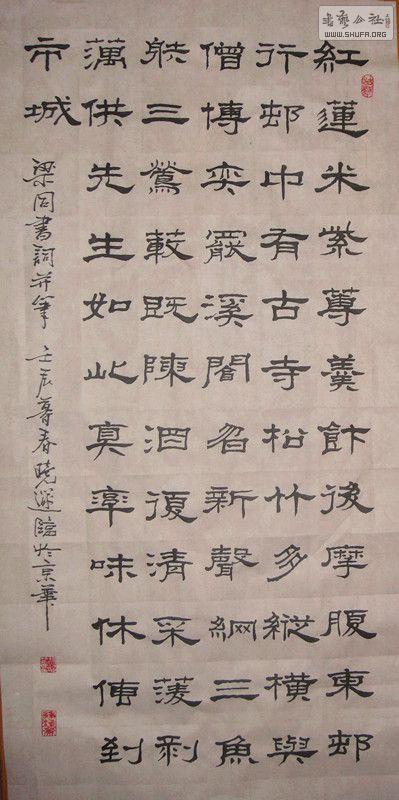 紅蓮米紫蓴羹飰後摩腹東邨
行邨中有古寺松竹多縱橫與
僧博奕罷溪名新聲網三魚
三既陳酒復清采菱剝
藕供先生如此真率味休傳到
市城
梁同書詞并筆 壬辰暮春曉臨於京華
WWW.SHUFA.ORG